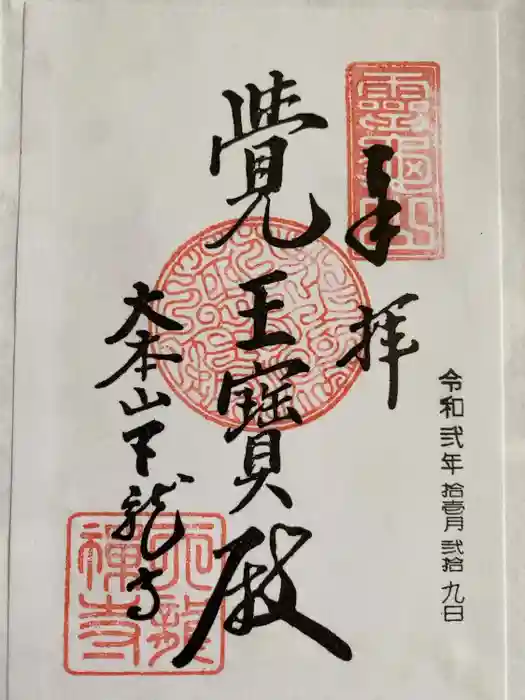 令和弐年 拾壹月 弐拾九日
靈龜山
奉拝
覺王寶殿
大本山天龍寺
天龍
禪寺